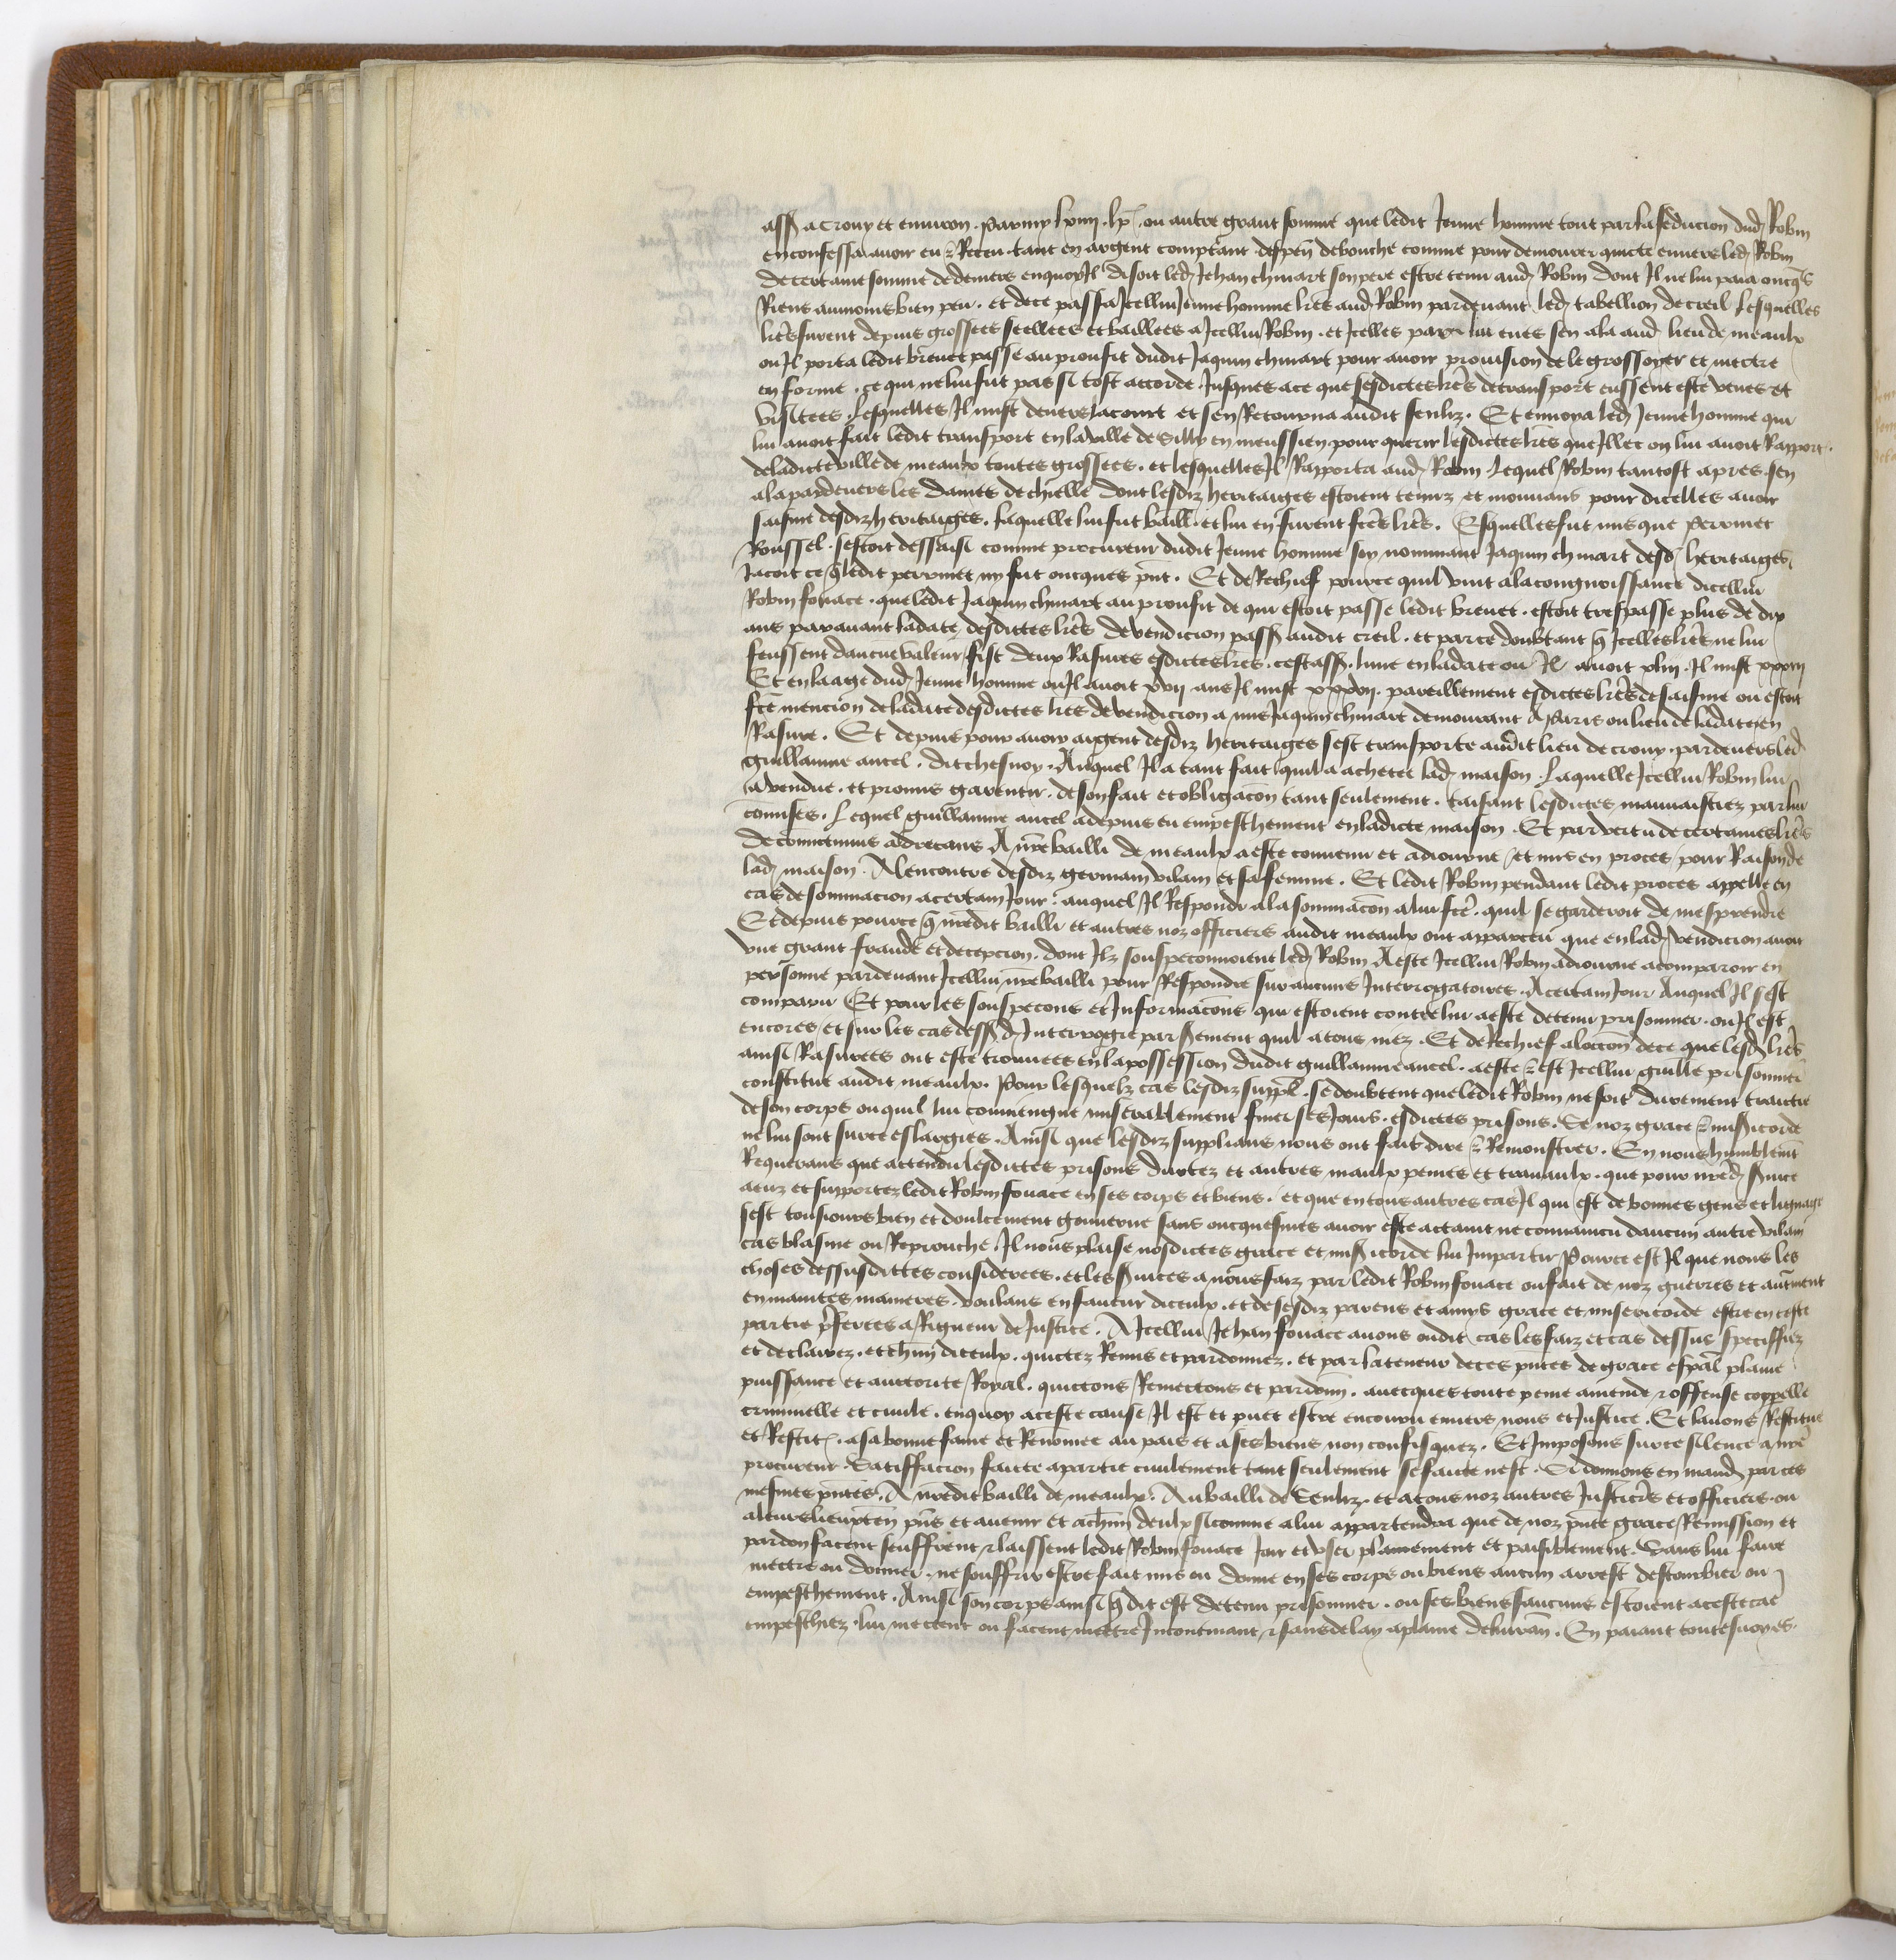 ass̃ a Crouy et enuiron . parmy lxiiii . lp̃ . ou autre grant somme que ledit Jeune homme tout par la seducion dud Robin
en confessa auoir eu & Receu . tant en argent comptant . despen̄ de bouche comme pour demourer quicte enuers led Robin
de certaine somme de deniers enquoy Il disoit led Jehan chmart son pere estre tenu aud Robin dont Il ne lui paia oncqs
Riens aumoins bien peu . et de ce passa Icellui Jeune homme lr̃es aud Robin pardeuant led tabellion de creil Lesquelles
lr̃es furent depuis grossees seellees et baillees a Icellui Robin . et Icelles par lui eues sen ala aud lieu de meaulx
ou Il porta ledit breuet passe au proufit dudit Jaquin chmart pour auoir prouision de le grossoyer et mectre
en forme . ce qui ne lui fut pas si tost accorde . Jusques a ce que sesdictes lr̃es de transport eussent este veues et
visitees . Lesquelles Il mist deuers la court et sen Retourna audit senliz . Et enuoya led Jeune homme qui
lui auoit fait ledit transport en la ville de Silly en meussien pour querir lesdictes lr̃es que Illec on lui auoit Rapport .
de ladicte ville de meaulx toutes grossees . et lesquelles Il Rapporta aud Robin Lequel Robin tantost apres sen
ala pardeuers les Dames de chielle dont lesdiz heritaiges estoient tenuz et mouuans pour dicelles auoir
saisine desdiz heritaiges . laquelle lui fut baill . et lui en furent fc̃es lr̃es . Esquelles fut mis que perrinet
Roussel . sestoit dessaisi comme procureur dudit Jeune homme soy nommant Jaquin chmart desd heritaiges
Jacoit ce q̃ ledit perrinet ny fut oncques pn̄t . Et de Rechief pource quil vint a la congnoissance dicellui
Robin fouace . que ledit Jaquin chmart au proufit de qui estoit passe ledit breuet . estoit trespasse plus de dix
ans parauant la date desdictes lr̃es de vendicion pass̃ audit creil . et par ce doubtant q̃ Icelles lr̃es ne lui
feussent daucune valeur fist deux Rasures esdictes lr̃es . cestass̃ . lune en la date ou Il auoit xliii . Il mist xxxiii
Et en laage dud Jeune homme ou Il auoit xvii ans Il mist xxxvii . pareillement esdictes lr̃es de saisine ou estoit
fc̃e mencion de la date desdictes lr̃es de vendicion a mis Jaquin chmart demourant A paris ou lieu de la date en
Rasure . Et depuis pour auoir argent desdiz heritaiges sest transporte audit lieu de crouy . pardeuers led
guillaume ancel . dit chesnoy . Auquel Il a tant fait quil a achetee lad maison . Laquelle Icellui Robin lui
a vendue . et promis garentir . de son fait et obligacōn tant seulement . taisant lesdictes mauuaistiez par lui
cōmises . Lequel guillaume ancel a depuis eu empeschement en ladicte maison . Et par vertu de certaines lr̃es
de cōmictimus adrecans A nr̃e bailli de meaulx a este conuenu et adiourne et mis en proces pour Raison de
lad maison . A lencontre desdiz germain vilain et sa femme . Et ledit Robin pendant ledit proces appelle en
cas de sommacion a certain Jour . auquel Il Respondi a la sommacōn a lui fc̃e . quil se garderoit de mesprendre
Et depuis pource q̃ nr̃edit bailli et autres noz officiers audit meaulx ont apparceu que en lad vendicion auoit
vne grant fraude et decepcion . dont Ilz souspeconnoient led Robin A este Icellui Robin adiourne a comparoir en
personne pardeuant Icellui nr̃e bailli pour Respondre sur aucuns Interrogatoires . A certain Jour Auquel Il sest
comparu Et pour les souspecons et Informacōns qui estoient contre lui a este detenu prisonnier . ou Il est
encores et sur les cas dess̃ d Interrogie par ss̃ement quil a tous niez . Et de Rechief a loccōn de ce que lesd lr̃es
ainsi Rasurees ont este trouuees en la possession dudit guillaume ancel . a este & est Icellui guille prisonnier
constitue audit meaulx . Pour lesquelz cas lesdiz suppl̃ . se doubtent que ledit Robin ne soit durement traictie
de son corps ou quil lui conuengne miserablement finer ses Jours . esdictes prisons . Se noz grace & mis̃icorde
ne lui sont sur ce eslargies . Ainsi que lesdiz supplians nous ont fait dire & Remonstrer . En nous humblem̄t
Requerans que attendu lesdictes prisons durtez et autres maulx peines et trauaulx . que pour nr̃ed s̃uice
a euz et supportez ledit Robin fouace en ses corps et biens . et que en tous autres cas Il qui est de bonnes gens et lignage
sest tousiours bien et doulcement gouuerne sans oncquesmes auoir este actaint ne conuaincu daucun autre vilain
cas blasme ou Reprouche . Il nous plaise nosdictes grace et mis̃icorde lui Impartir Pource est Il que nous les
choses dessusdittes considerees . et les s̃uices a nous faiz par ledit Robin fouace ou fait de noz guerres et autrmēnt
en maintes manieres . voulans en faueur diceulx . et de sesdiz parens et amys grace et misericorde estre en ceste
partie p̃ferees a Rigueur de Justice . A Icellui Jehan fouace auons oudit cas les faiz et cas dessus speciffiez
et declairez . et ch̄un diceulx . quictez Remis et pardonnez . et par la teneur de ces pn̄tes de grace esp̃al plaine
puissance et auctorite Royal . quictons Remectons et pardonn̄ . auecques toute peine amende & offense corp̃elle
criminelle et ciuile . enquoy a ceste cause Il est et puet estre encouru enuers nous et Justice . Et lauons Restitue
et Restit̃ . a sa bonne fame et Renōmee au pais et a ses biens non confisquez . Et Imposons sur ce silence a nr̃e
procureur . Satiffacion faicte a partie ciuilement tant seulement se faicte nest . Si donnons en mand par ces
mesmes pn̄tes . A nr̃edit bailli de meaulx . Au bailli de Senliz . et a tous noz autres Justiciers et officiers . ou
a leurs lieuxten̄ pn̄s et auenir et a ch̄un deulx sicomme a lui appartendra que de noz pn̄te grace Remission et
pardon facent seuffrent & laissent ledit Robin fouace Joir et vser plainement et paisiblement . Sans lui faire
mectre ou donner . ne souffrir estre fait mis ou donne en ses corps ou biens aucun arrest destourbier ou
empeschement . Ainsi son corps ainsi q̃ dit est detenu prisonnier . ou ses biens saucuns estoient a ceste cae
empeschiez . lui mectent ou facent mectre Incontinant & sans delay a plaine deliuran̄ . En paiant toutesuoyes .